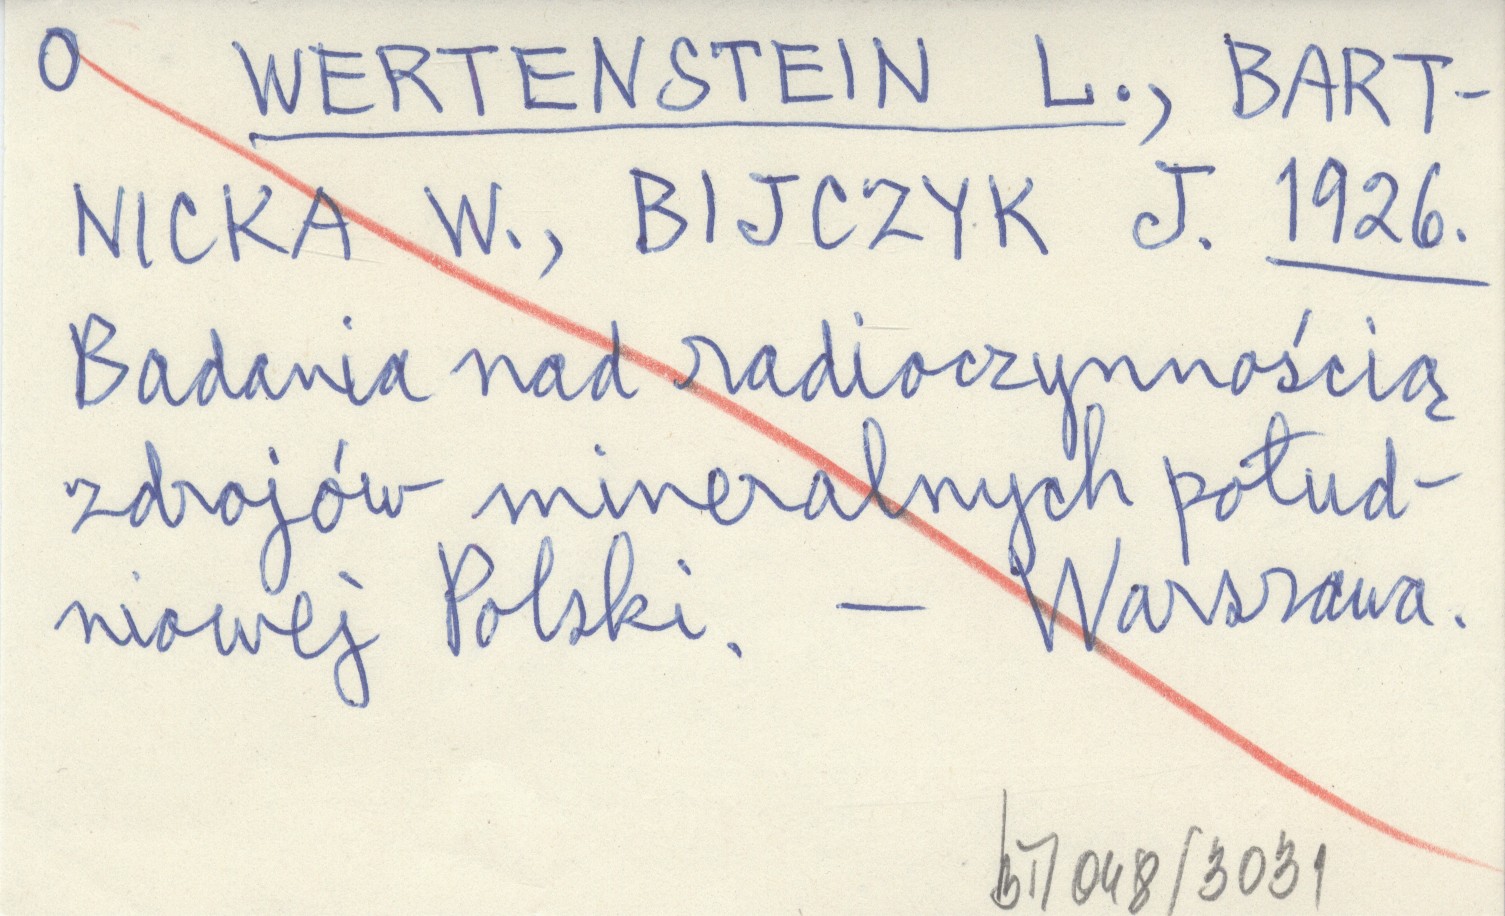 O WERTENSTEIN L., BART-
NICKA W., BIJCZYK J. 1926.
Badania nad radioczynnością
zdrojów mineralnych połud-
niowej Polski. — Warszawa.
048/3031